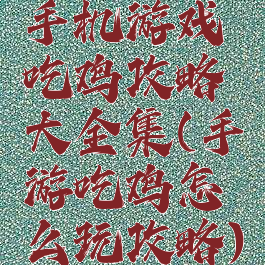 手机游戏
吃鸡攻略
大全集(手
游吃鸡怎
么玩攻略)